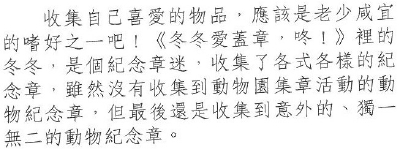 收集自己喜愛的物品，應該是老少咸宜
的嗜好之一吧！《冬冬愛蓋章，咚！》裡的
冬冬，是個紀念章迷，收集了各式各樣的紀
念章，雖然沒有收集到動物園集章活動的動
物紀念章，但最後還是收集到意外的、獨一
無二的動物紀念章。